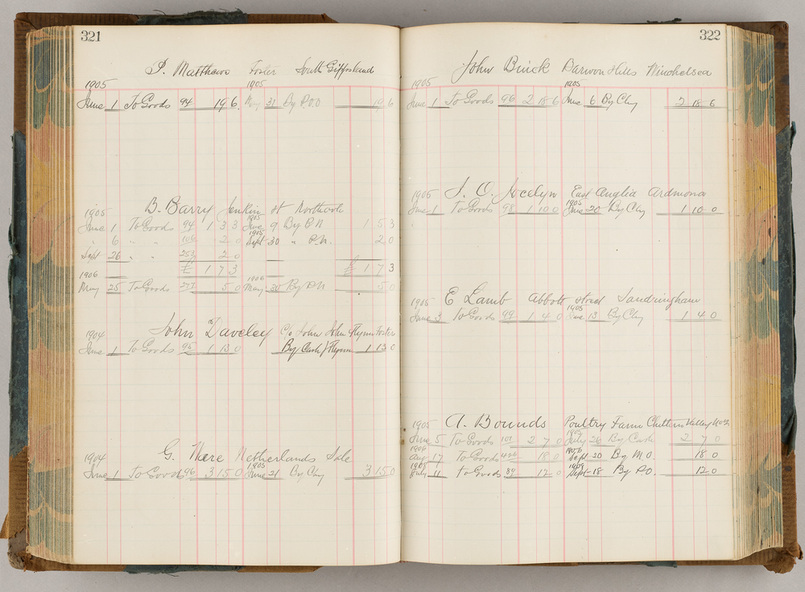 321
P. Matthews Foster South Gippsland
1905 1905
June 1 To Goods 94 19 6 31 By P.O. 19 6
B. Barry St Northcote
1905 1905
June 1 To Goods 94 1 3 3 June 9 By P.N. 1 5 3
" 6 " " 106 2 0 Sept 30 " P.N. 2 0
Sept 26 " " 2 0
£ 1 7 3 £ 1 7 3
1906 1906
May 25 To Goods 5 0 May By P.N. 5 0
John Daveley C/o John Flynn Foster
1904
June 1 To Goods 95 1 13 0 By Cash / Flynn 1 13 0
G. Mere Netherlands Sale
1904 1905
June 1 To Goods 96 3 15 0 June 21 By Chq 3 15 0
322
John Buick Darwon Hills Winchelsea
1905 1905
June 1 To Goods 98 2 18 6 June 6 By Chq 2 18 6
J. O. Jocelyn East Anglia Ardmona
1905 1905
June 1 To Goods 98 1 10 0 June 20 By Chq 1 10 0
E Lamb Abbott Street Sandringham
1905 1905
June 3 To Goods 99 1 4 0 June 13 By Chq 1 4 0
A. Bounds Poultry Farm Valley
1905
June 5 To Goods 101 2 7 0 July 26 By Cash 2 7 0
Aug 17 To Goods 18 0 Sept 20 By M.O. 18 0
July 11 To Goods 39 12 0 Sept 18 By P.O. 12 0